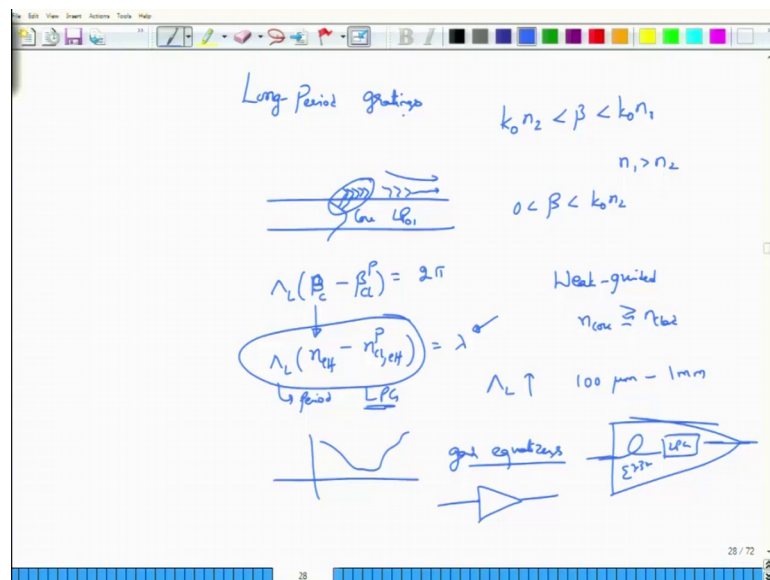 File Edit View Insert Actions Tools Help
Long-Period gratings
k₀n₂ < β < k₀n₁
n₁ > n₂
Core LP₀₁
0 < β < k₀n₂
Λ_L(β_c - β_cl^p) = 2π
Weak-guided
n_core ≳ n_clad
Λ_L(n_eff - n_cl,eff^p) = λ
Λ_L ↑ 100 μm - 1mm
↳ Period LPG
gain equalizers
LPG
28 / 72
28